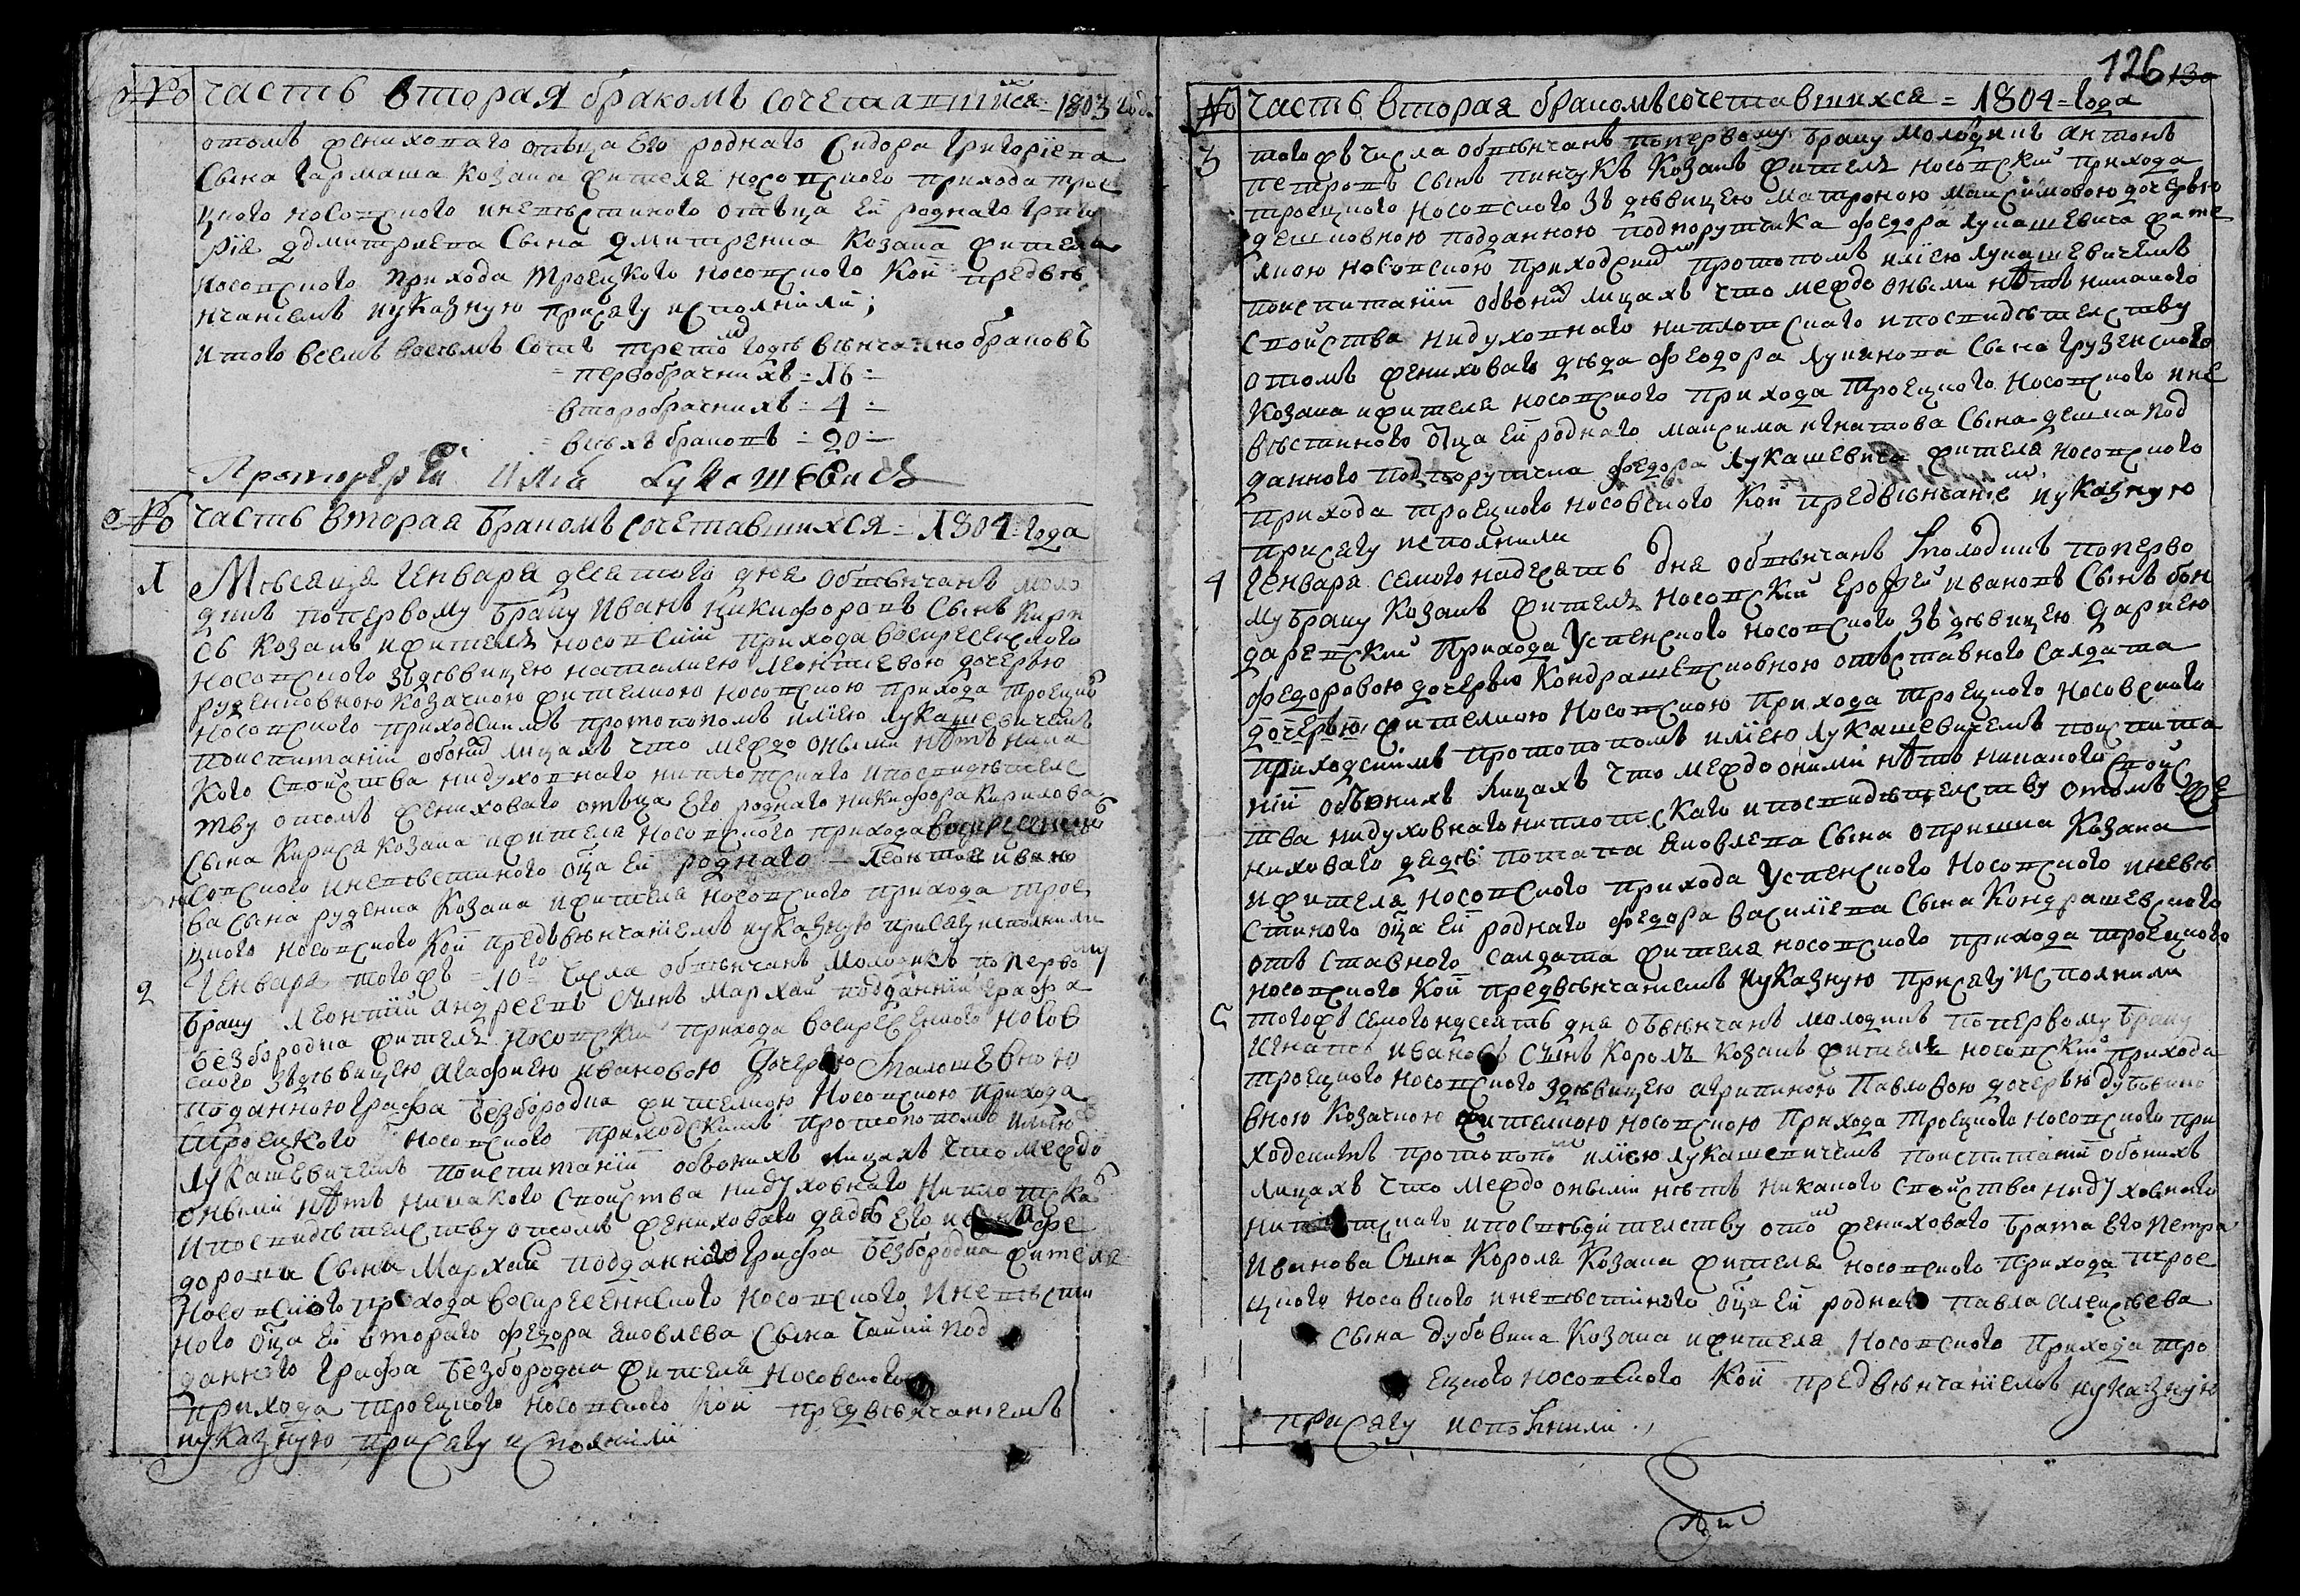 № часть вторая бракомъ сочетавшийся = 1803 года
отомъ жениховаго отъца его роднаго Сидора Григорїева
Сына Гармаша козака жителя носовского прихода трое
цкого носовского иневѣстиного отъца ей роднаго Григо
рїя Дмитриева Сына Дмитренка Козака жителя
носовского прихода Троецкого носовского кои предвѣ
нчанїемъ иуказную присягу исполнили;
Итого всемъ восемъ сотъ третомъ годѣ вѣнчанно браковъ
первобрачнихъ = 16 =
второбрачнихъ = 4 =
всѣхъ браковъ = 20 =
Протоїерей Илїя Лукашевичъ
№ часть вторая браком сочетавшихся = 1804 = года
1 Мѣсяця Генваря десятого дня обвѣнчанъ моло
дикъ поперво́му браку Иванъ никифоровъ Сынъ Кири
сь козакъ ижитель носовский прихода воскресенского
носовского зъдѣвицею наталиею леонтиевою дочерью
руденковною козачкою жителкою носовскою прихода троецкого
носовского приходскимъ протопопомъ илїею лукашевичемъ
поиспитанїи обоихъ лицахъ что междо оными нѣтъ ника
кого своиства нидуховнаго ниплотскаго ипосвидѣтелс
тву отомъ жениховаго отъца его роднаго никифора Кирилова
Сына Кирися козака ижителя носовского прихода воскресенского
носовского иневѣстиного оца ей роднаго Леонтия ивано
ва сына руденка козака ижителя носовского прихода трое
цкого носовского кои предвѣнчанїемъ иуказную присягу исполнили
2 Генваря того жъ = 10го = числа обвѣнчанъ молодикъ поперво му
браку леонтий андреевъ Сынъ Мархай подданний Графа
безбородка житель носовский прихода воскресенского носов
ского зъдѣвицею агафиею ивановою дочерью
поданною Графа безбородка жителкою носовскою прихода
Троецкого носовского приходскимъ протопопомъ илїею
лукашевичемъ поиспитанїи обоихъ лицахъ что междо
оными нѣтъ никакого своиства нидуховнаго ниплотскаго
ипосвидѣтелству отомъ жениховаго дядѣ его
дорова Сына Мархая подданного Графа безбородка жителя
носовского прихода воскресенского носовского иневѣсти
ного оца ей втораго федора яковлева Сына Чайки под
данного Графа безбородка жителя носовского
прихода троецкого носовского кои предвѣнчанїемъ
иуказную присягу исполнили
126 130
№ часть вторая бракомъ сочетавшихся = 1804 = года
3 того жъ числа обвѣнчанъ поперво́му браку молодикъ антонъ
петровъ сынъ пинчукъ козакъ житель носовский прихода
троецкого носовского зъ дѣвицею матроною максимовою дочерью
дешковною подданною подпорутчика федора лукашевича жите
лкою носовскою приходским протопопомъ илїею лукашевичемъ
поиспитанїи обоихъ лицахъ что междо оными нѣтъ никакого
своиства нидуховнаго ниплотскаго ипосвидѣтелству
отомъ жениховаго дѣда феодора Сына Грузенского
козака ижителя носовского прихода троецкого носовского ине
вѣстиного оца ей роднаго максима игнатова Сына дешка под
данного подпорутчика федора лукашевича жителя носовского
прихода троецкого носовского кои предвѣнчанїемъ иуказную
присягу исполнили
4 Генваря семогонадесять дня обвѣнчанъ молодикъ поперво
му браку козакъ житель носовский Ерофей ивановъ Сынъ бон
даревский прихода Успенского носовского зъ дѣвицею дариею
федоровою дочерью Кондрашевсковною отъставного салдата
дочерью жителкою носовскою прихода троецкого носовского
приходскимъ протопопомъ илїею лукашевичемъ поиспита
нїи обоихъ лицахъ что междо оними нѣтъ никакого своис
тва нидуховнаго ниплотскаго ипосвидѣтелству отомъ же
ниховаго дядѣ потапа яковлева Сына опришка козака
ижителя носовского прихода Успенского носовского иневѣ
стиного оца ей роднаго федора василїева Сына Кондрашевского
отъ ставного салдата жителя носовского прихода троецкого
носовского кои предвѣнчанїемъ иуказную присягу исполнили
5 тогожъ семогонадесять дня обвѣнчанъ молодикъ поперво́му браку
Игнатъ ивановъ Сынъ Король козакъ житель носовский прихода
троецкого носовского здѣвицею агрипиною Павловою дочерью дубовико
вною козачкою жителкою носовскою прихода троецкого носовского при
ходскимъ протопопомъ илїею лукашевичемъ поиспитанїи обоихъ
лицахъ что междо оными нѣтъ никакого своиства нидуховнаго
ниплотскаго ипосвѣдителству отомъ жениховаго брата его петра
Иванова Сына Короля козака жителя носовского прихода трое
цкого носовского иневѣстиного оца ей роднаго павла алексѣева
сына дубовика козака ижителя носовского прихода тро
ецкого носовского кои предвѣнчанїемъ иуказную
присягу исполнили